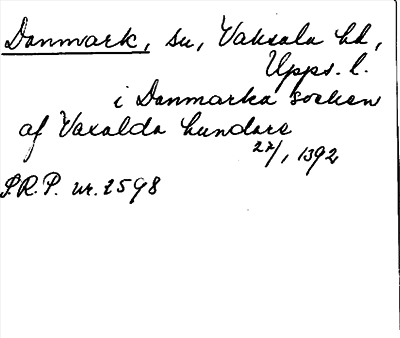 Danmark, sn, Vaksala hd,
Upps. l.
i Danmarka socken
af Vaxalda hundare
22/1 1392
S.R.P. nr. 2598